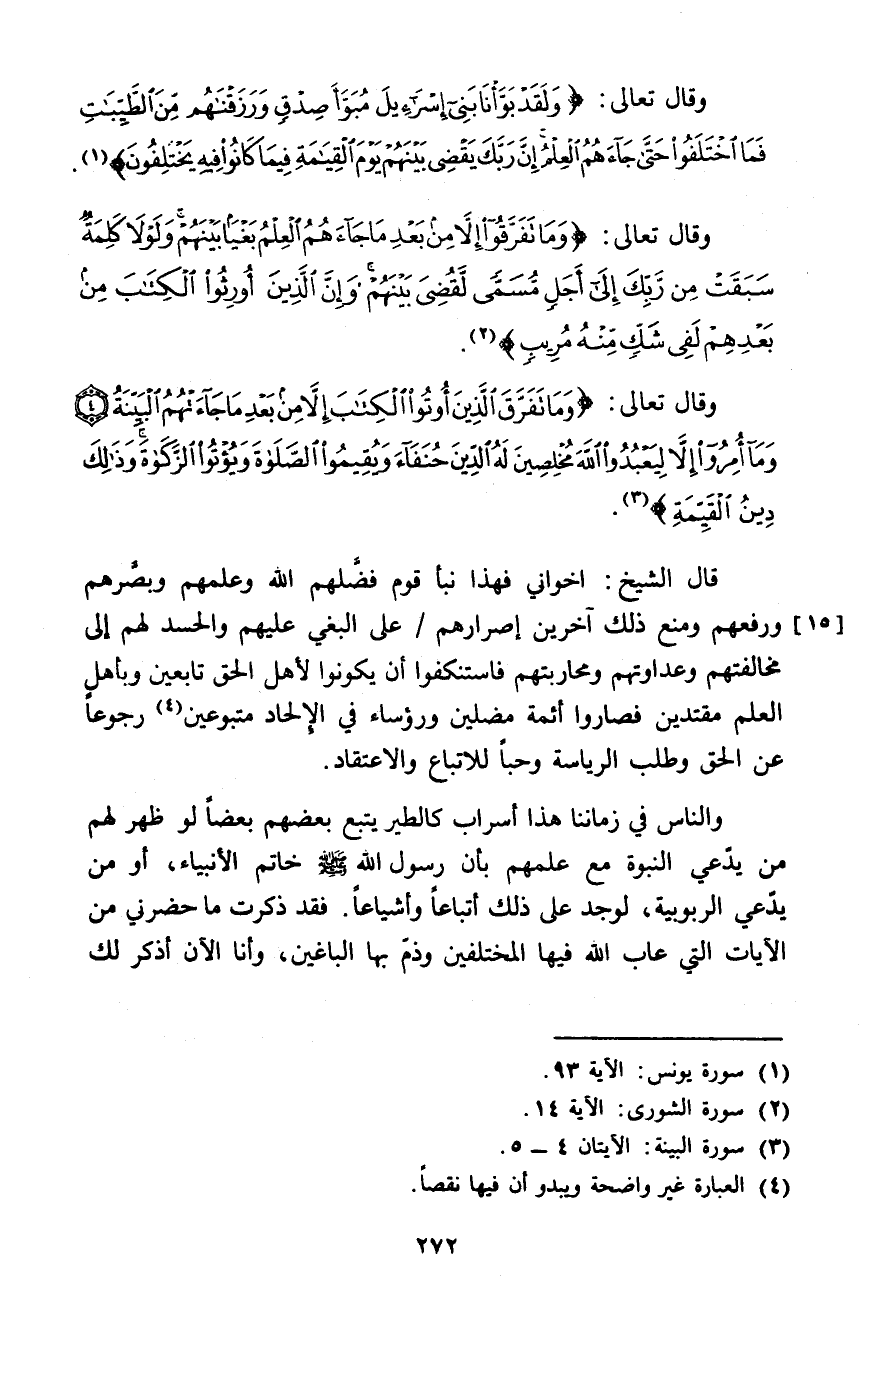 وقال تعالى: ﴿ وَلَقَدْ بَوَّأْنَا بَنِىٓ إِسْرَٰٓءِيلَ مُبَوَّأَ صِدْقٍ وَرَزَقْنَٰهُم مِّنَ ٱلطَّيِّبَٰتِ
فَمَا ٱخْتَلَفُوا۟ حَتَّىٰ جَآءَهُمُ ٱلْعِلْمُ ۚ إِنَّ رَبَّكَ يَقْضِى بَيْنَهُمْ يَوْمَ ٱلْقِيَٰمَةِ فِيمَا كَانُوا۟ فِيهِ يَخْتَلِفُونَ ﴾(١).
وقال تعالى: ﴿ وَمَا تَفَرَّقُوٓا۟ إِلَّا مِنۢ بَعْدِ مَا جَآءَهُمُ ٱلْعِلْمُ بَغْيًۢا بَيْنَهُمْ ۚ وَلَوْلَا كَلِمَةٌ
سَبَقَتْ مِن رَّبِّكَ إِلَىٰٓ أَجَلٍ مُّسَمًّى لَّقُضِىَ بَيْنَهُمْ ۚ وَإِنَّ ٱلَّذِينَ أُورِثُوا۟ ٱلْكِتَٰبَ مِنۢ
بَعْدِهِمْ لَفِى شَكٍّ مِّنْهُ مُرِيبٍ ﴾(٢).
وقال تعالى: ﴿ وَمَا تَفَرَّقَ ٱلَّذِينَ أُوتُوا۟ ٱلْكِتَٰبَ إِلَّا مِنۢ بَعْدِ مَا جَآءَتْهُمُ ٱلْبَيِّنَةُ ٤
وَمَآ أُمِرُوٓا۟ إِلَّا لِيَعْبُدُوا۟ ٱللَّهَ مُخْلِصِينَ لَهُ ٱلدِّينَ حُنَفَآءَ وَيُقِيمُوا۟ ٱلصَّلَوٰةَ وَيُؤْتُوا۟ ٱلزَّكَوٰةَ ۚ وَذَٰلِكَ
دِينُ ٱلْقَيِّمَةِ ﴾(٣).
قال الشيخ: اخواني فهذا نبأ قوم فضَّلهم الله وعلمهم وبصَّرهم
[١٥] ورفعهم ومنع ذلك آخرين إصرارهم / على البغي عليهم والحسد لهم إلى
مخالفتهم وعداوتهم ومحاربتهم فاستنكفوا أن يكونوا لأهل الحق تابعين وبأهل
العلم مقتدين فصاروا أئمة مضلين ورؤساء في الإلحاد متبوعين(٤) رجوعاً
عن الحق وطلب الرياسة وحباً للاتباع والاعتقاد.
والناس في زماننا هذا أسراب كالطير يتبع بعضهم بعضاً لو ظهر لهم
من يدّعي النبوة مع علمهم بأن رسول الله ﷺ خاتم الأنبياء، أو من
يدّعي الربوبية، لوجد على ذلك أتباعاً وأشياعاً. فقد ذكرت ما حضرني من
الآيات التي عاب الله فيها المختلفين وذمّ بها الباغين، وأنا الآن أذكر لك
(١) سورة يونس: الآية ٩٣.
(٢) سورة الشورى: الآية ١٤.
(٣) سورة البينة: الآيتان ٤ ــ ٥.
(٤) العبارة غير واضحة ويبدو أن فيها نقصاً.
٢٧٢